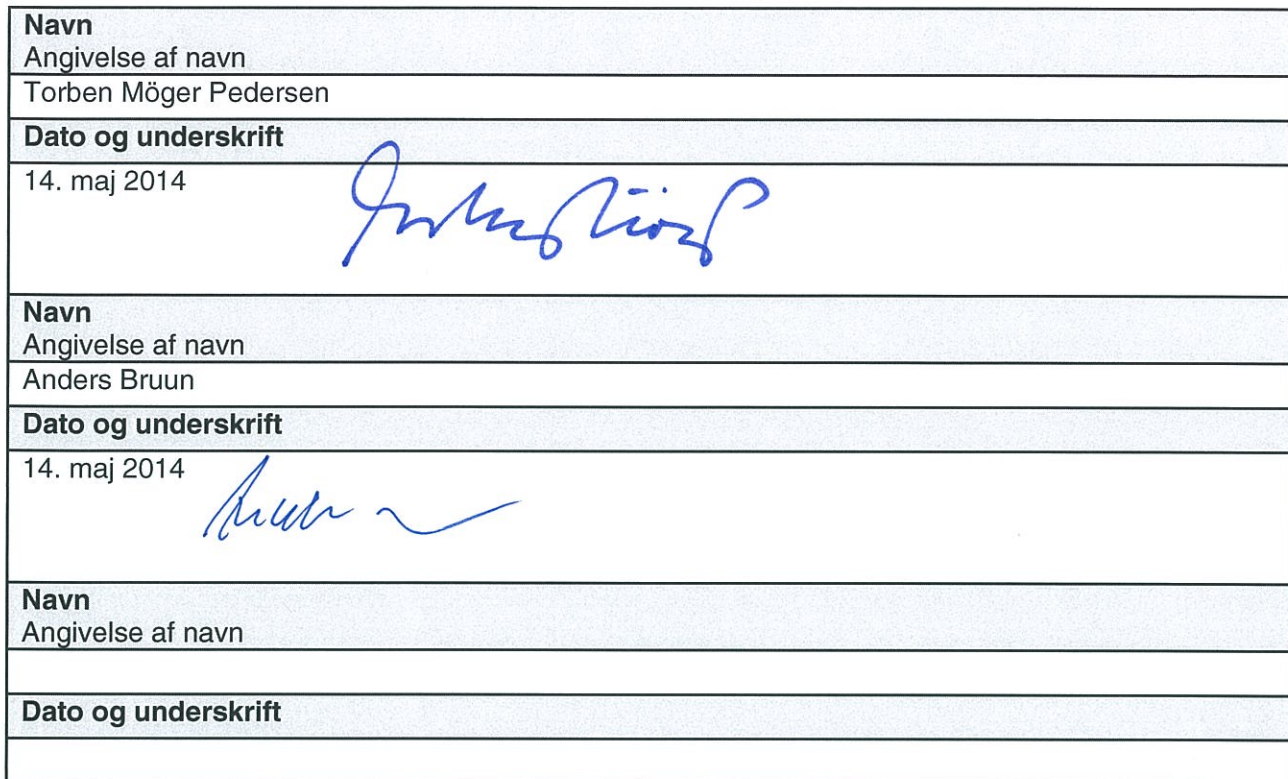 Navn
Angivelse af navn
Torben Möger Pedersen
Dato og underskrift
14. maj 2014
Navn
Angivelse af navn
Anders Bruun
Dato og underskrift
14. maj 2014
Navn
Angivelse af navn
Dato og underskrift